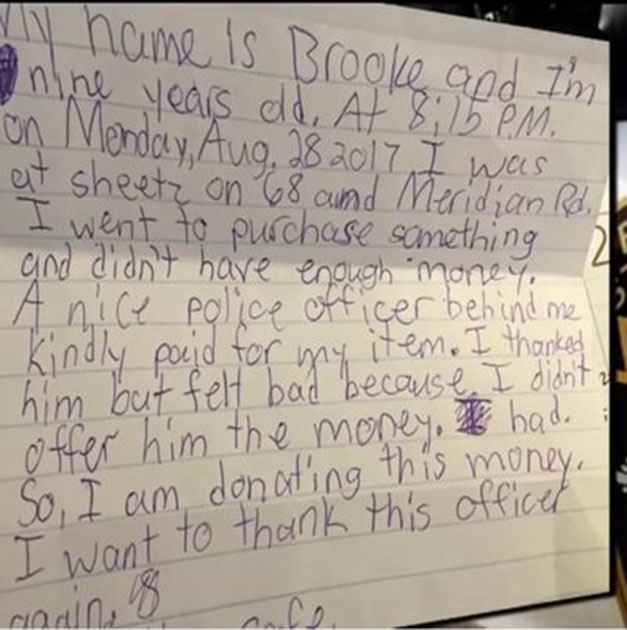 My name is Brooke and I'm
nine years old. At 8:15 P.M.
on Monday, Aug. 28 2017 I was
at sheetz on 68 and Meridian Rd.
I went to purchase something
and didn't have enough money.
A nice police officer behind me
kindly paid for my item. I thanked
him but felt bad because I didn't
offer him the money. I had.
So, I am donating this money.
I want to thank this officer
again.